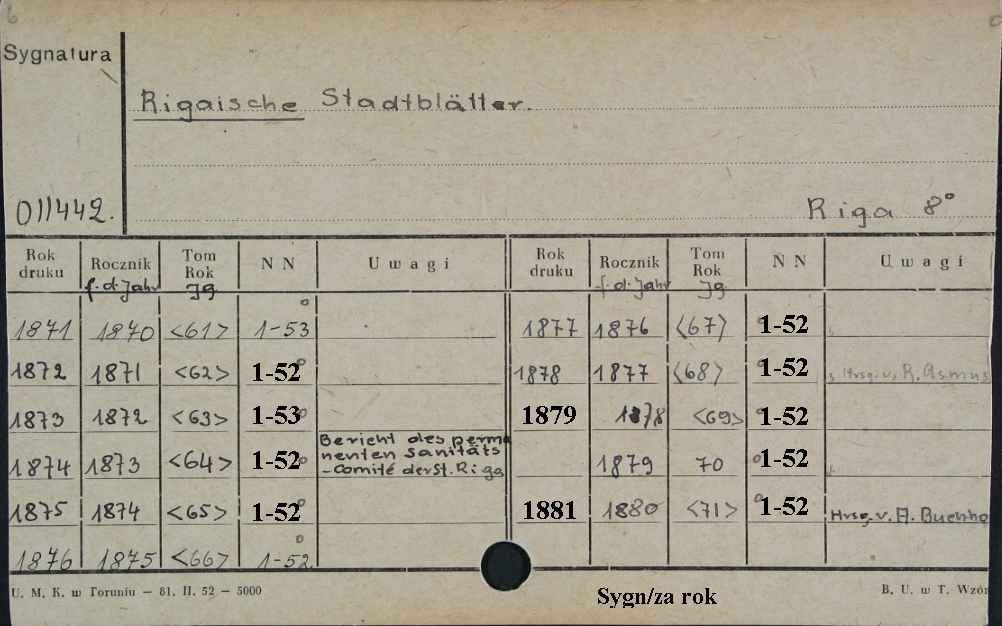 Sygnatura
Rigaische Stadtblätter.
011442.
Riga 8°
Rok druku Rocznik f. d. Jahr Tom Rok Jg N N Uwagi Rok druku Rocznik f. d. Jahr Tom Rok Jg N N Uwagi
1871 1870 <61> 1-53 1877 1876 <67> 1-52
1872 1871 <62> 1-52 1878 1877 <68> 1-52 Hrsg. v. R. Asmus
1873 1872 <63> 1-53 1879 1878 <69> 1-52
Bericht des perma
nenten Sanitäts
1874 1873 <64> 1-52 -Comité der St. Riga 1879 70 1-52
1875 1874 <65> 1-52 1881 1880 <71> 1-52 Hrsg. v. A. Buchho
1876 1875 <66> 1-52
U. M. K. w Toruniu — 81. II. 52 — 5000 Sygn/za rok B. U. w T. Wzór